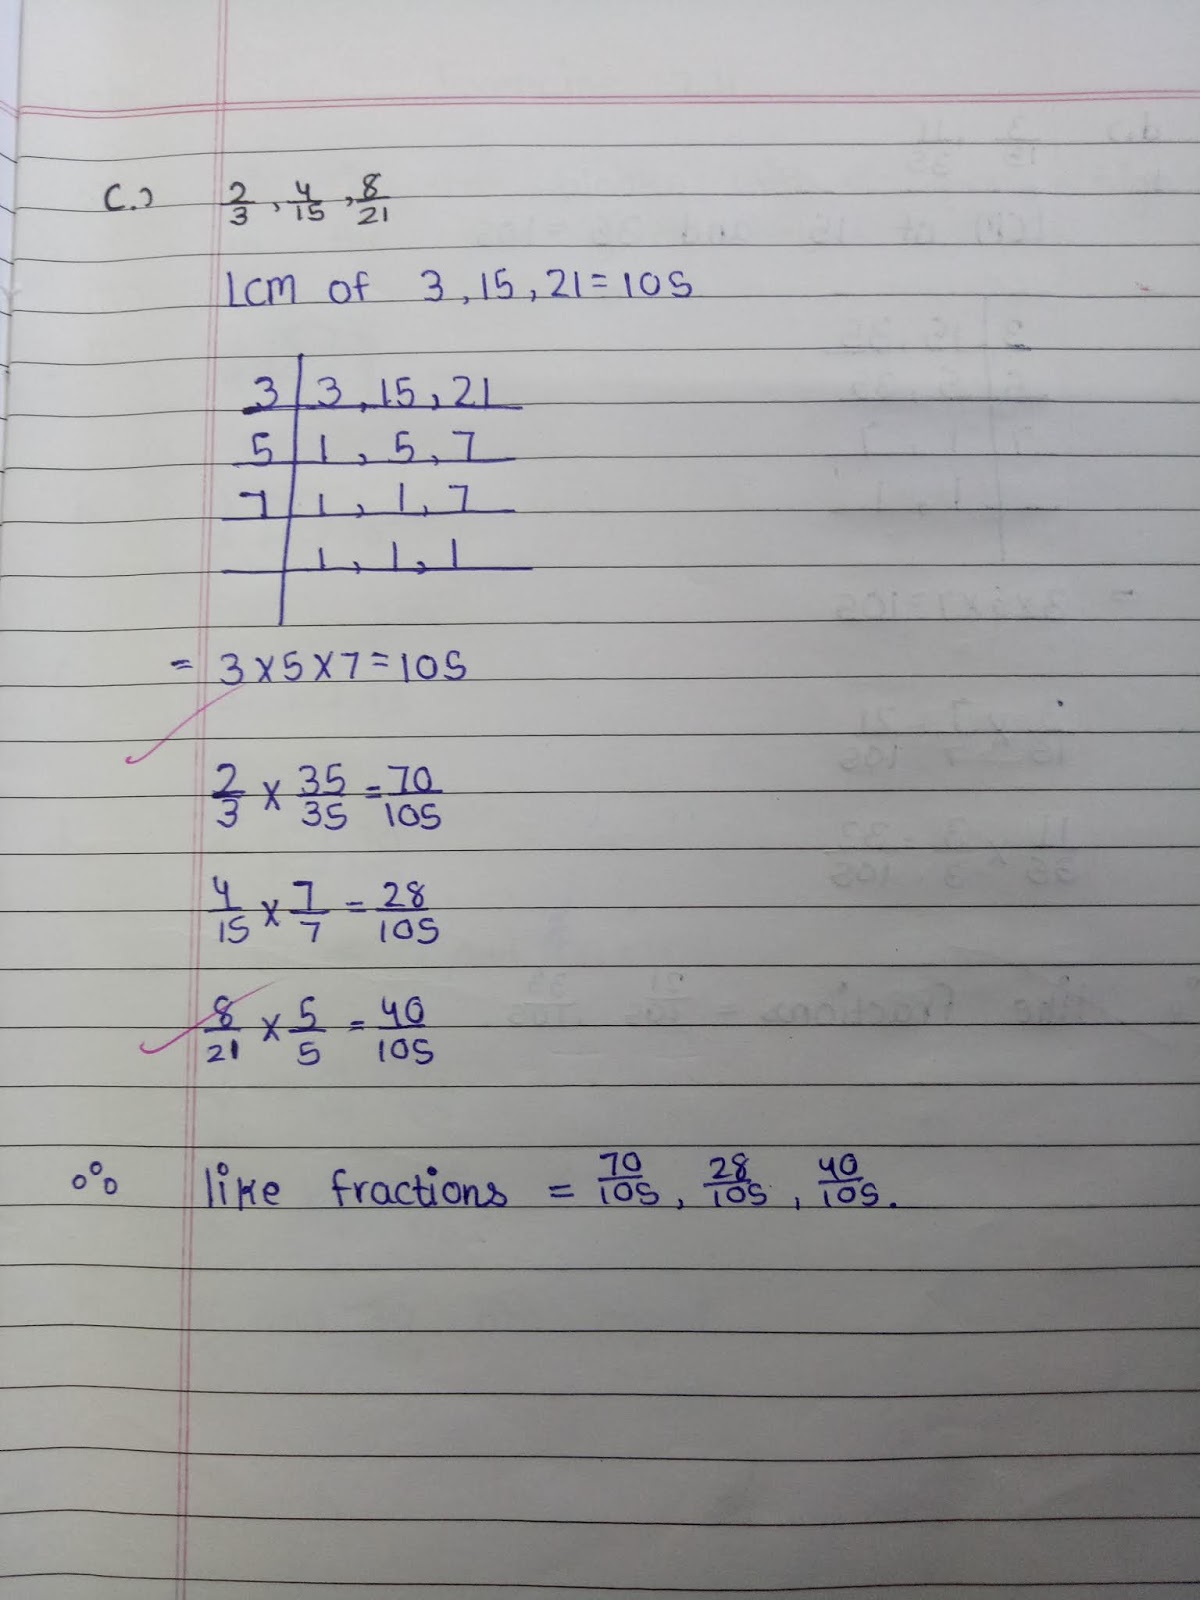 C.) 2/3, 4/15, 8/21
LCM of 3, 15, 21 = 105
3 | 3, 15, 21
5 | 1, 5, 7
7 | 1, 1, 7
| 1, 1, 1
= 3 × 5 × 7 = 105
2/3 × 35/35 = 70/105
4/15 × 7/7 = 28/105
8/21 × 5/5 = 40/105
∴ like fractions = 70/105, 28/105, 40/105.